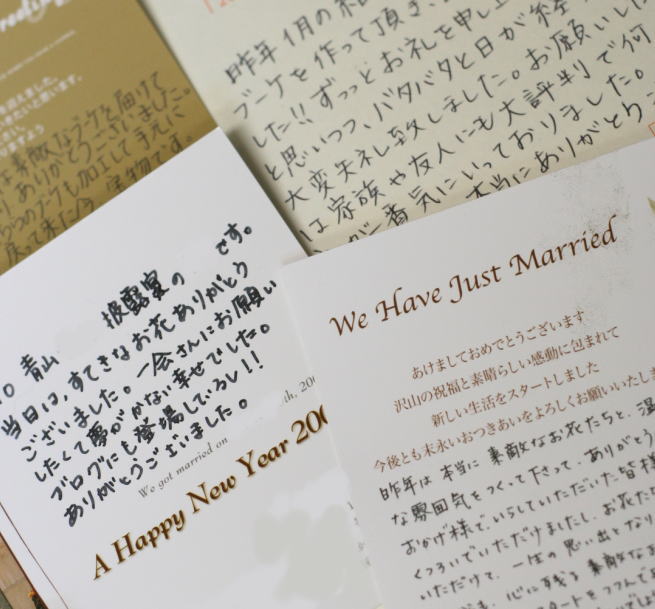 reeting
を迎えました。
きたいと思います。
さい。
りますよう
は素敵なブーケを届けて
ありがとうございました。
のブーケも加工して手元に
戻って来た今、宝物です。
昨年1月の結
ブーケを作って頂き、
した!!ずっとお礼を申し上
と思いつつ、バタバタと日が経
大変失礼致しました。お願いした
は家族や友人にも大評判で何
が一番気にいっておりました。
本当にありがとう
青山
披露宴の です。
当日は、すてきなお花ありがとう
ございました。一会さんにお願い
したくて夢がかない幸せでした。
ブログにも登場しているし!!
ありがとうございました。
We got married on th, 200
A Happy New Year 200
We Have Just Married
あけましておめでとうございます
沢山の祝福と素晴らしい感動に包まれて
新しい生活をスタートしました
今後とも末永いおつきあいをよろしくお願いいたしま
昨年は本当に素敵なお花たちと、温
な雰囲気をつくって下さって、ありがとう
おかげ様で、いらしていただいた皆様
くつろいでいただけましたし、お花た
いただけて、一生の思い出となり
心に残る素敵なお